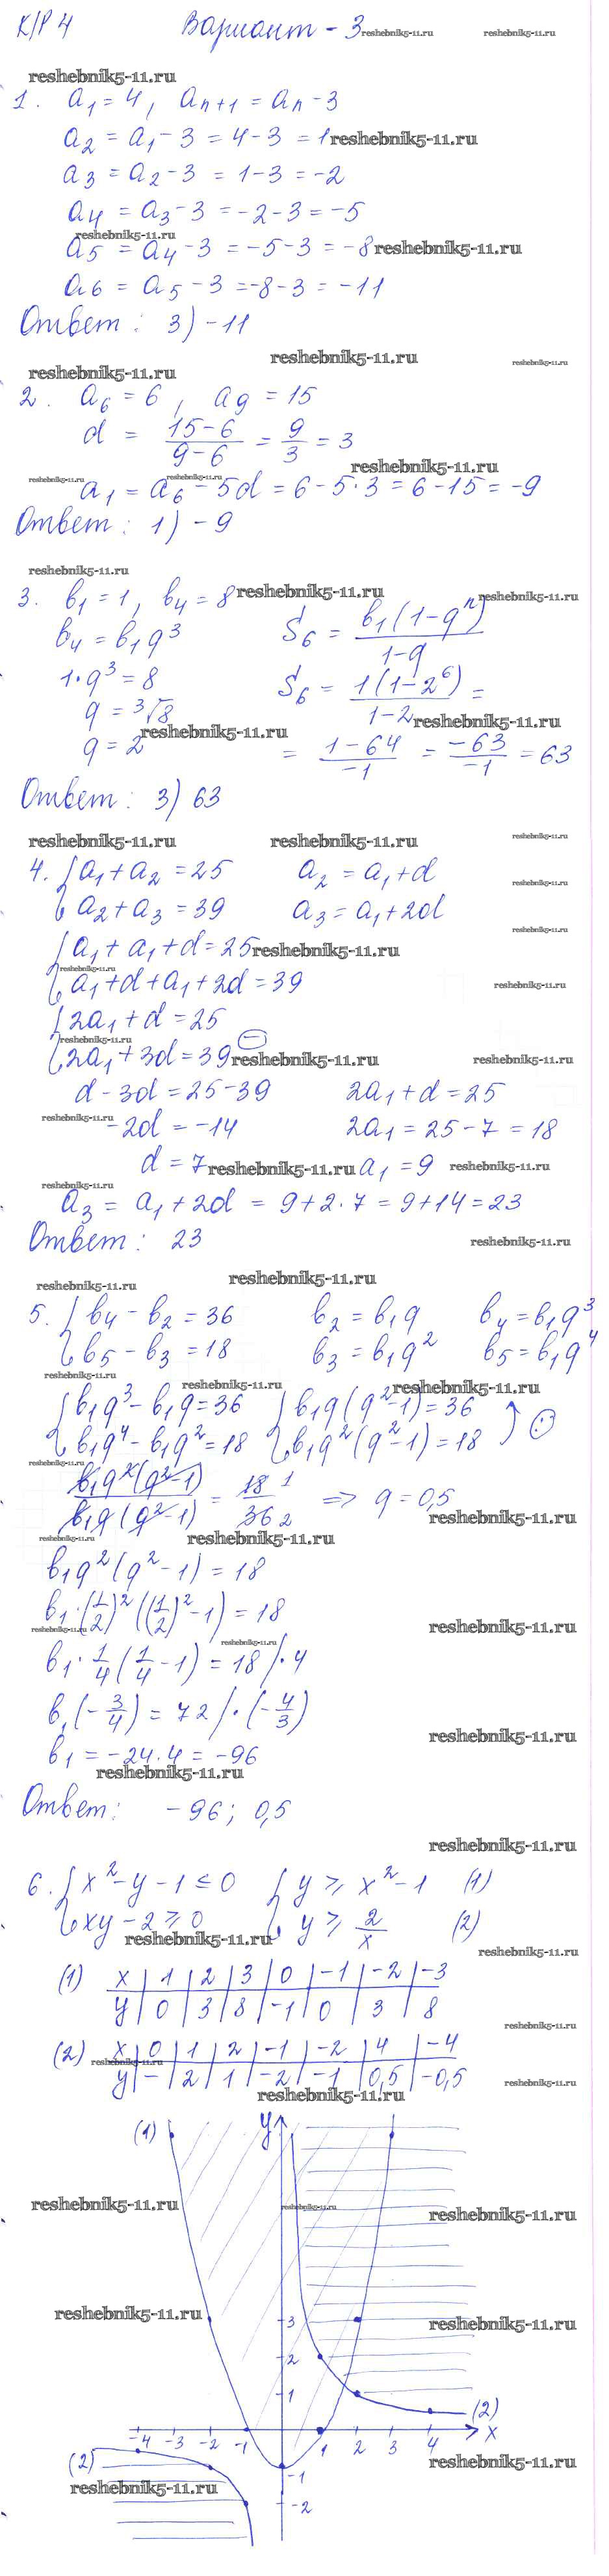 К/Р 4 Вариант - 3 reshebnik5-11.ru reshebnik5-11.ru
reshebnik5-11.ru
1. a₁ = 4, aₙ₊₁ = aₙ - 3
a₂ = a₁ - 3 = 4 - 3 = 1 reshebnik5-11.ru
a₃ = a₂ - 3 = 1 - 3 = -2
a₄ = a₃ - 3 = -2 - 3 = -5
reshebnik5-11.ru
a₅ = a₄ - 3 = -5 - 3 = -8 reshebnik5-11.ru
a₆ = a₅ - 3 = -8 - 3 = -11
Ответ: 3) -11
reshebnik5-11.ru reshebnik5-11.ru reshebnik5-11.ru
2. a₆ = 6, a₉ = 15
d = (15-6)/(9-6) = 9/3 = 3
reshebnik5-11.ru reshebnik5-11.ru reshebnik5-11.ru
a₁ = a₆ - 5d = 6 - 5·3 = 6 - 15 = -9
Ответ: 1) -9
reshebnik5-11.ru
3. b₁ = 1, b₄ = 8 reshebnik5-11.ru reshebnik5-11.ru
b₄ = b₁q³ S₆ = b₁(1-qⁿ)/(1-q)
1·q³ = 8 S₆ = 1(1-2⁶)/(1-2) =
q = ³√8 reshebnik5-11.ru
q = 2 reshebnik5-11.ru = (1-64)/-1 = -63/-1 = 63
Ответ: 3) 63
reshebnik5-11.ru reshebnik5-11.ru reshebnik5-11.ru
4. { a₁ + a₂ = 25 a₂ = a₁ + d
reshebnik5-11.ru
a₂ + a₃ = 39 a₃ = a₁ + 2d
reshebnik5-11.ru
{ a₁ + a₁ + d = 25 reshebnik5-11.ru
reshebnik5-11.ru
a₁ + d + a₁ + 2d = 39 reshebnik5-11.ru
{ 2a₁ + d = 25
reshebnik5-11.ru
2a₁ + 3d = 39 (-) reshebnik5-11.ru reshebnik5-11.ru
d - 3d = 25 - 39 2a₁ + d = 25
reshebnik5-11.ru
-2d = -14 2a₁ = 25 - 7 = 18
d = 7 reshebnik5-11.ru a₁ = 9 reshebnik5-11.ru
reshebnik5-11.ru
a₃ = a₁ + 2d = 9 + 2·7 = 9 + 14 = 23
Ответ: 23 reshebnik5-11.ru
reshebnik5-11.ru reshebnik5-11.ru
5. { b₄ - b₂ = 36 b₂ = b₁q b₄ = b₁q³
b₅ - b₃ = 18 b₃ = b₁q² b₅ = b₁q⁴
reshebnik5-11.ru reshebnik5-11.ru reshebnik5-11.ru
{ b₁q³ - b₁q = 36 { b₁q(q²-1) = 36
b₁q⁴ - b₁q² = 18 b₁q²(q²-1) = 18 ) (:)
reshebnik5-11.ru
b₁q²(q²-1)/b₁q(q²-1) = 18 1/36 2 => q = 0,5
reshebnik5-11.ru
reshebnik5-11.ru reshebnik5-11.ru
b₁q²(q²-1) = 18
b₁·(1/2)²((1/2)²-1) = 18
reshebnik5-11.ru reshebnik5-11.ru reshebnik5-11.ru
b₁·1/4(1/4-1) = 18 /·4
b₁(-3/4) = 72 /·(-4/3)
reshebnik5-11.ru
b₁ = -24·4 = -96
reshebnik5-11.ru
Ответ: -96; 0,5
reshebnik5-11.ru
6. { x² - y - 1 ≤ 0 { y ⩾ x² - 1 (1)
xy - 2 ⩾ 0 y ⩾ 2/x (2)
reshebnik5-11.ru reshebnik5-11.ru
(1) x | 1 | 2 | 3 | 0 | -1 | -2 | -3
y | 0 | 3 | 8 | -1 | 0 | 3 | 8
reshebnik5-11.ru
(2) x | 0 | 1 | 2 | -1 | -2 | 4 | -4
reshebnik5-11.ru
y | - | 2 | 1 | -2 | -1 | 0,5 | -0,5
reshebnik5-11.ru reshebnik5-11.ru
(1) y
reshebnik5-11.ru reshebnik5-11.ru reshebnik5-11.ru
reshebnik5-11.ru 3 reshebnik5-11.ru
2
1
(2)
-4 -3 -2 -1 1 2 3 4 x
(2) reshebnik5-11.ru
-1
reshebnik5-11.ru
-2